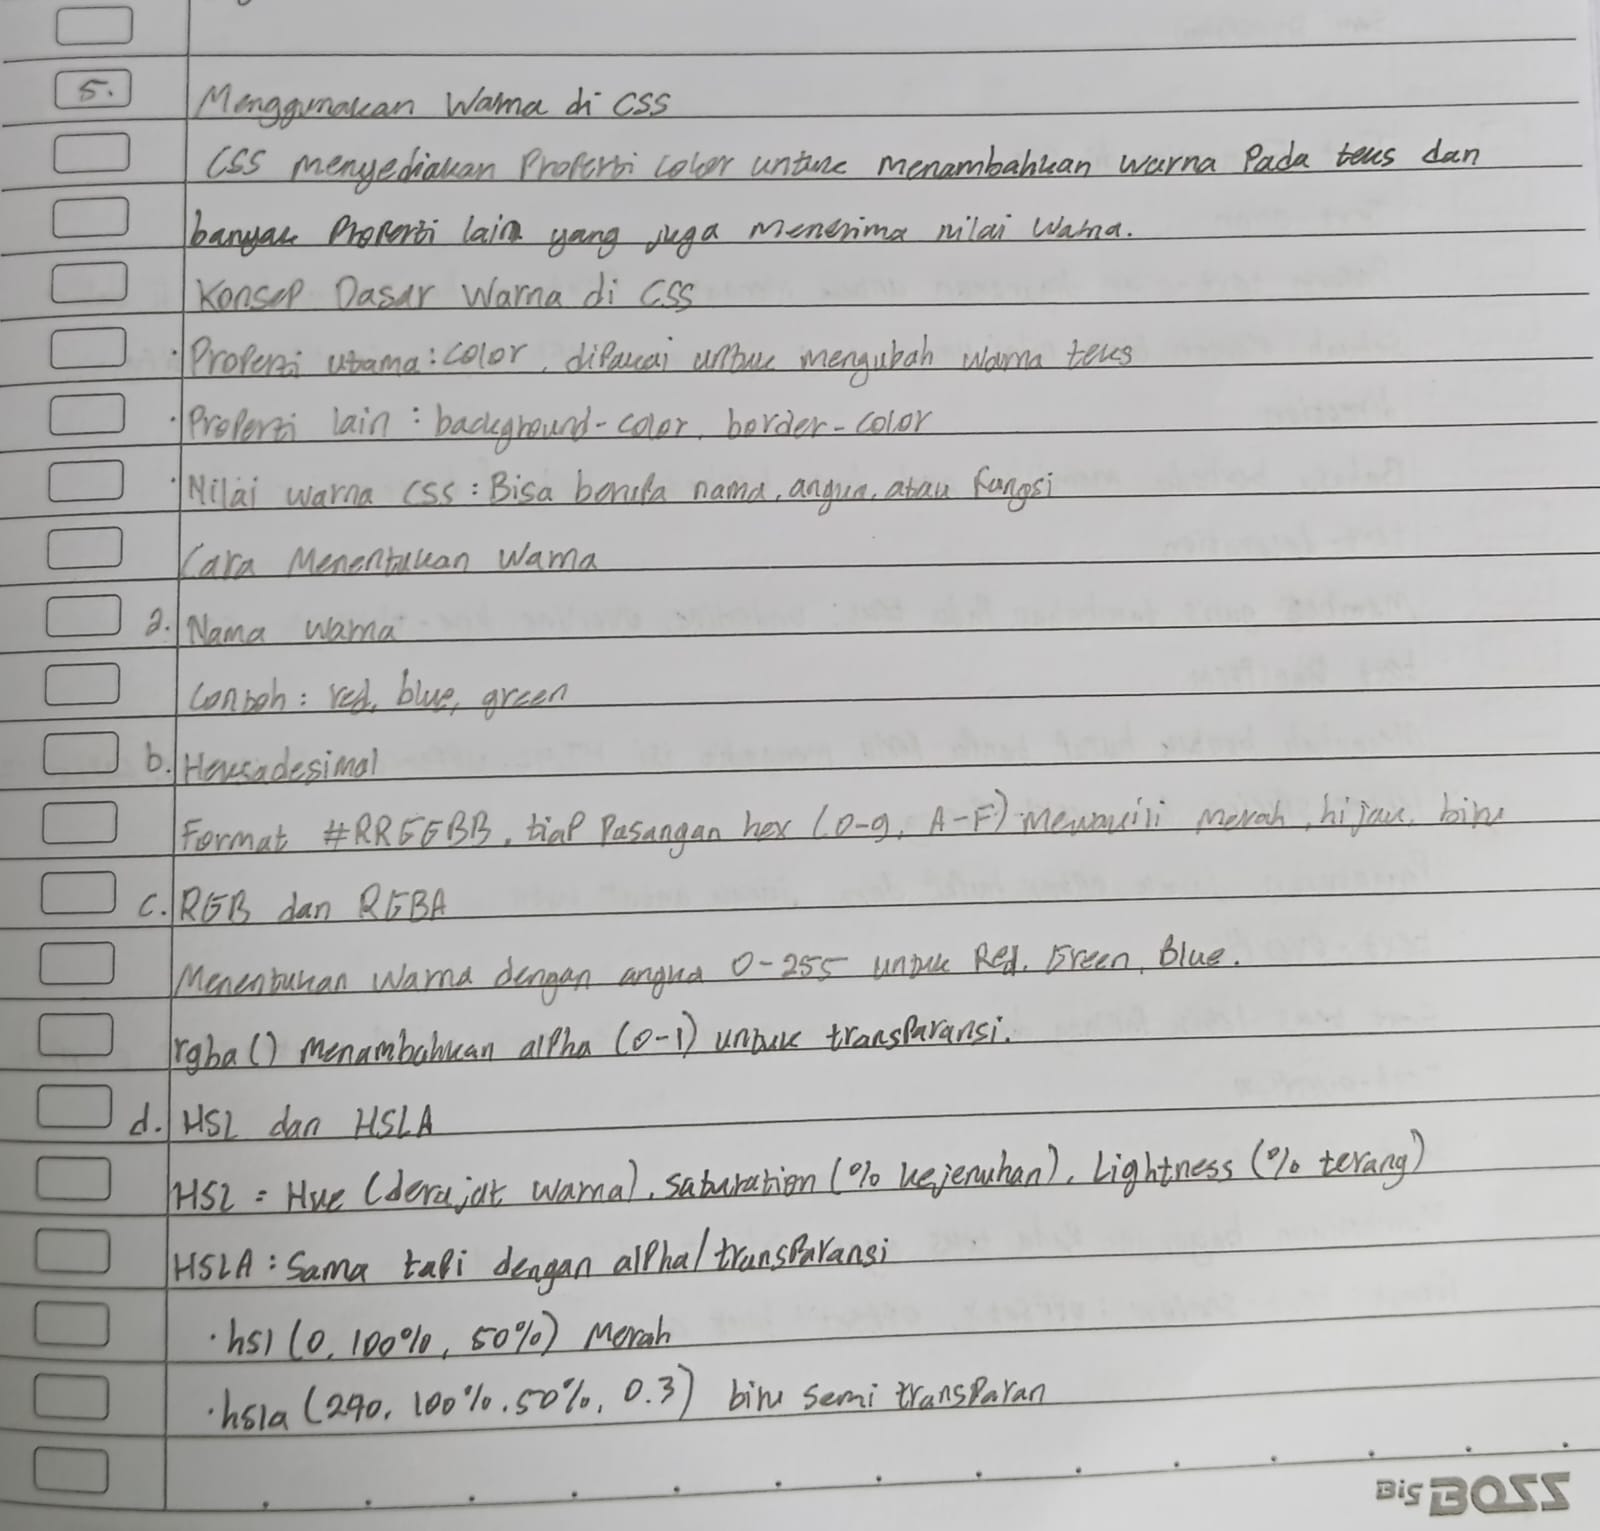 5. Menggunakan Warna di CSS
CSS menyediakan Properti color untuk menambahkan warna Pada teks dan
banyak Properti lain yang juga menerima nilai warna.
Konsep Dasar Warna di CSS
• Properti utama : color, dipakai untuk mengubah warna teks
• Properti lain : background-color, border-color
• Nilai warna CSS : Bisa berupa nama, angka, atau fungsi
Cara Menentukan Warna
a. Nama warna
Contoh : red, blue, green
b. Heksadesimal
Format #RRGGBB, tiap Pasangan hex (0-9, A-F) mewakili merah, hijau, biru
c. RGB dan RGBA
Menentukan warna dengan angka 0-255 untuk Red, Green, Blue.
rgba() menambahkan alpha (0-1) untuk transparansi.
d. HSL dan HSLA
HSL = Hue (derajat warna), saturation (% kejenuhan), Lightness (% terang)
HSLA : Sama tapi dengan alpha/transparansi
• hsl (0, 100%, 50%) Merah
• hsla (240, 100%, 50%, 0.3) biru semi transparan
BiG BOSS